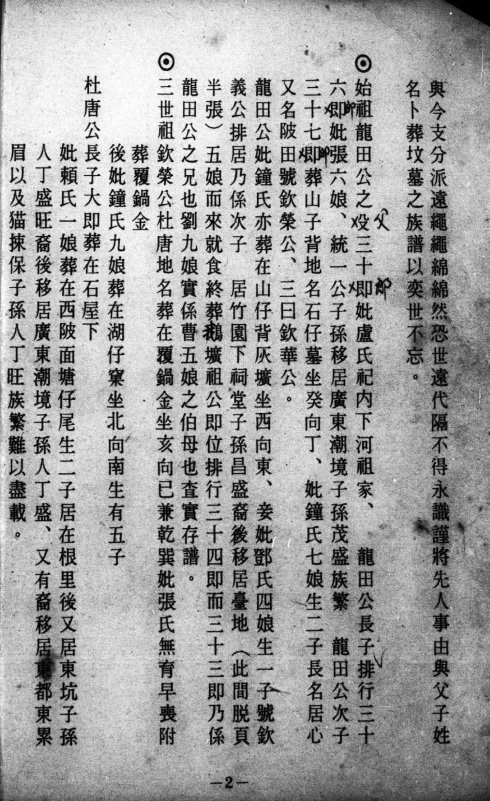 與今支分派遠繩繩綿綿然恐世遠代隔不得永識謹將先人事由與父子姓
名卜葬坟墓之族譜以奕世不忘。
⊙始祖龍田公之父三十郎妣盧氏祀內下河祖家、 龍田公長子排行三十
六郎妣張六娘、統一公子孫移居廣東潮境子孫茂盛族繁 龍田公次子
三十七郎葬山子背地名石仔墓坐癸向丁、妣鐘氏七娘生二子長名居心
又名陂田號欽榮公、三曰欽華公。
龍田公妣鐘氏亦葬在山仔背灰壙坐西向東、妾妣鄧氏四娘生一子號欽
義公排居乃係次子 居竹園下祠堂子孫昌盛裔後移居臺地（此間脱頁
半張）五娘而來就食終葬鵝壙祖公即位排行三十四即而三十三即乃係
龍田公之兄也劉九娘實係曹五娘之伯母也查實存譜。
⊙三世祖欽榮公杜唐地名葬在覆鍋金坐亥向巳兼乾巽妣張氏無育早喪附
葬覆鍋金
後妣鐘氏九娘葬在湖仔窠坐北向南生有五子
杜唐公長子大即葬在石屋下
妣賴氏一娘葬在西陂面塘仔尾生二子居在根里後又居東坑子孫
人丁盛旺裔後移居廣東潮境子孫人丁盛、又有裔移居東都東累
眉以及猫拺保子孫人丁旺族繁難以盡載。
—2—